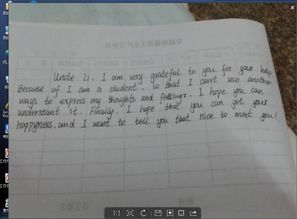 Uncle Li. I am very grateful to you for your help
Because of I am a student. so that I can't use another
ways to express my thoughts and feelings. I hope you can
understant it. Finally I hope that you can get your
happyness. and I want to tell you that nice to meet you!
1:1